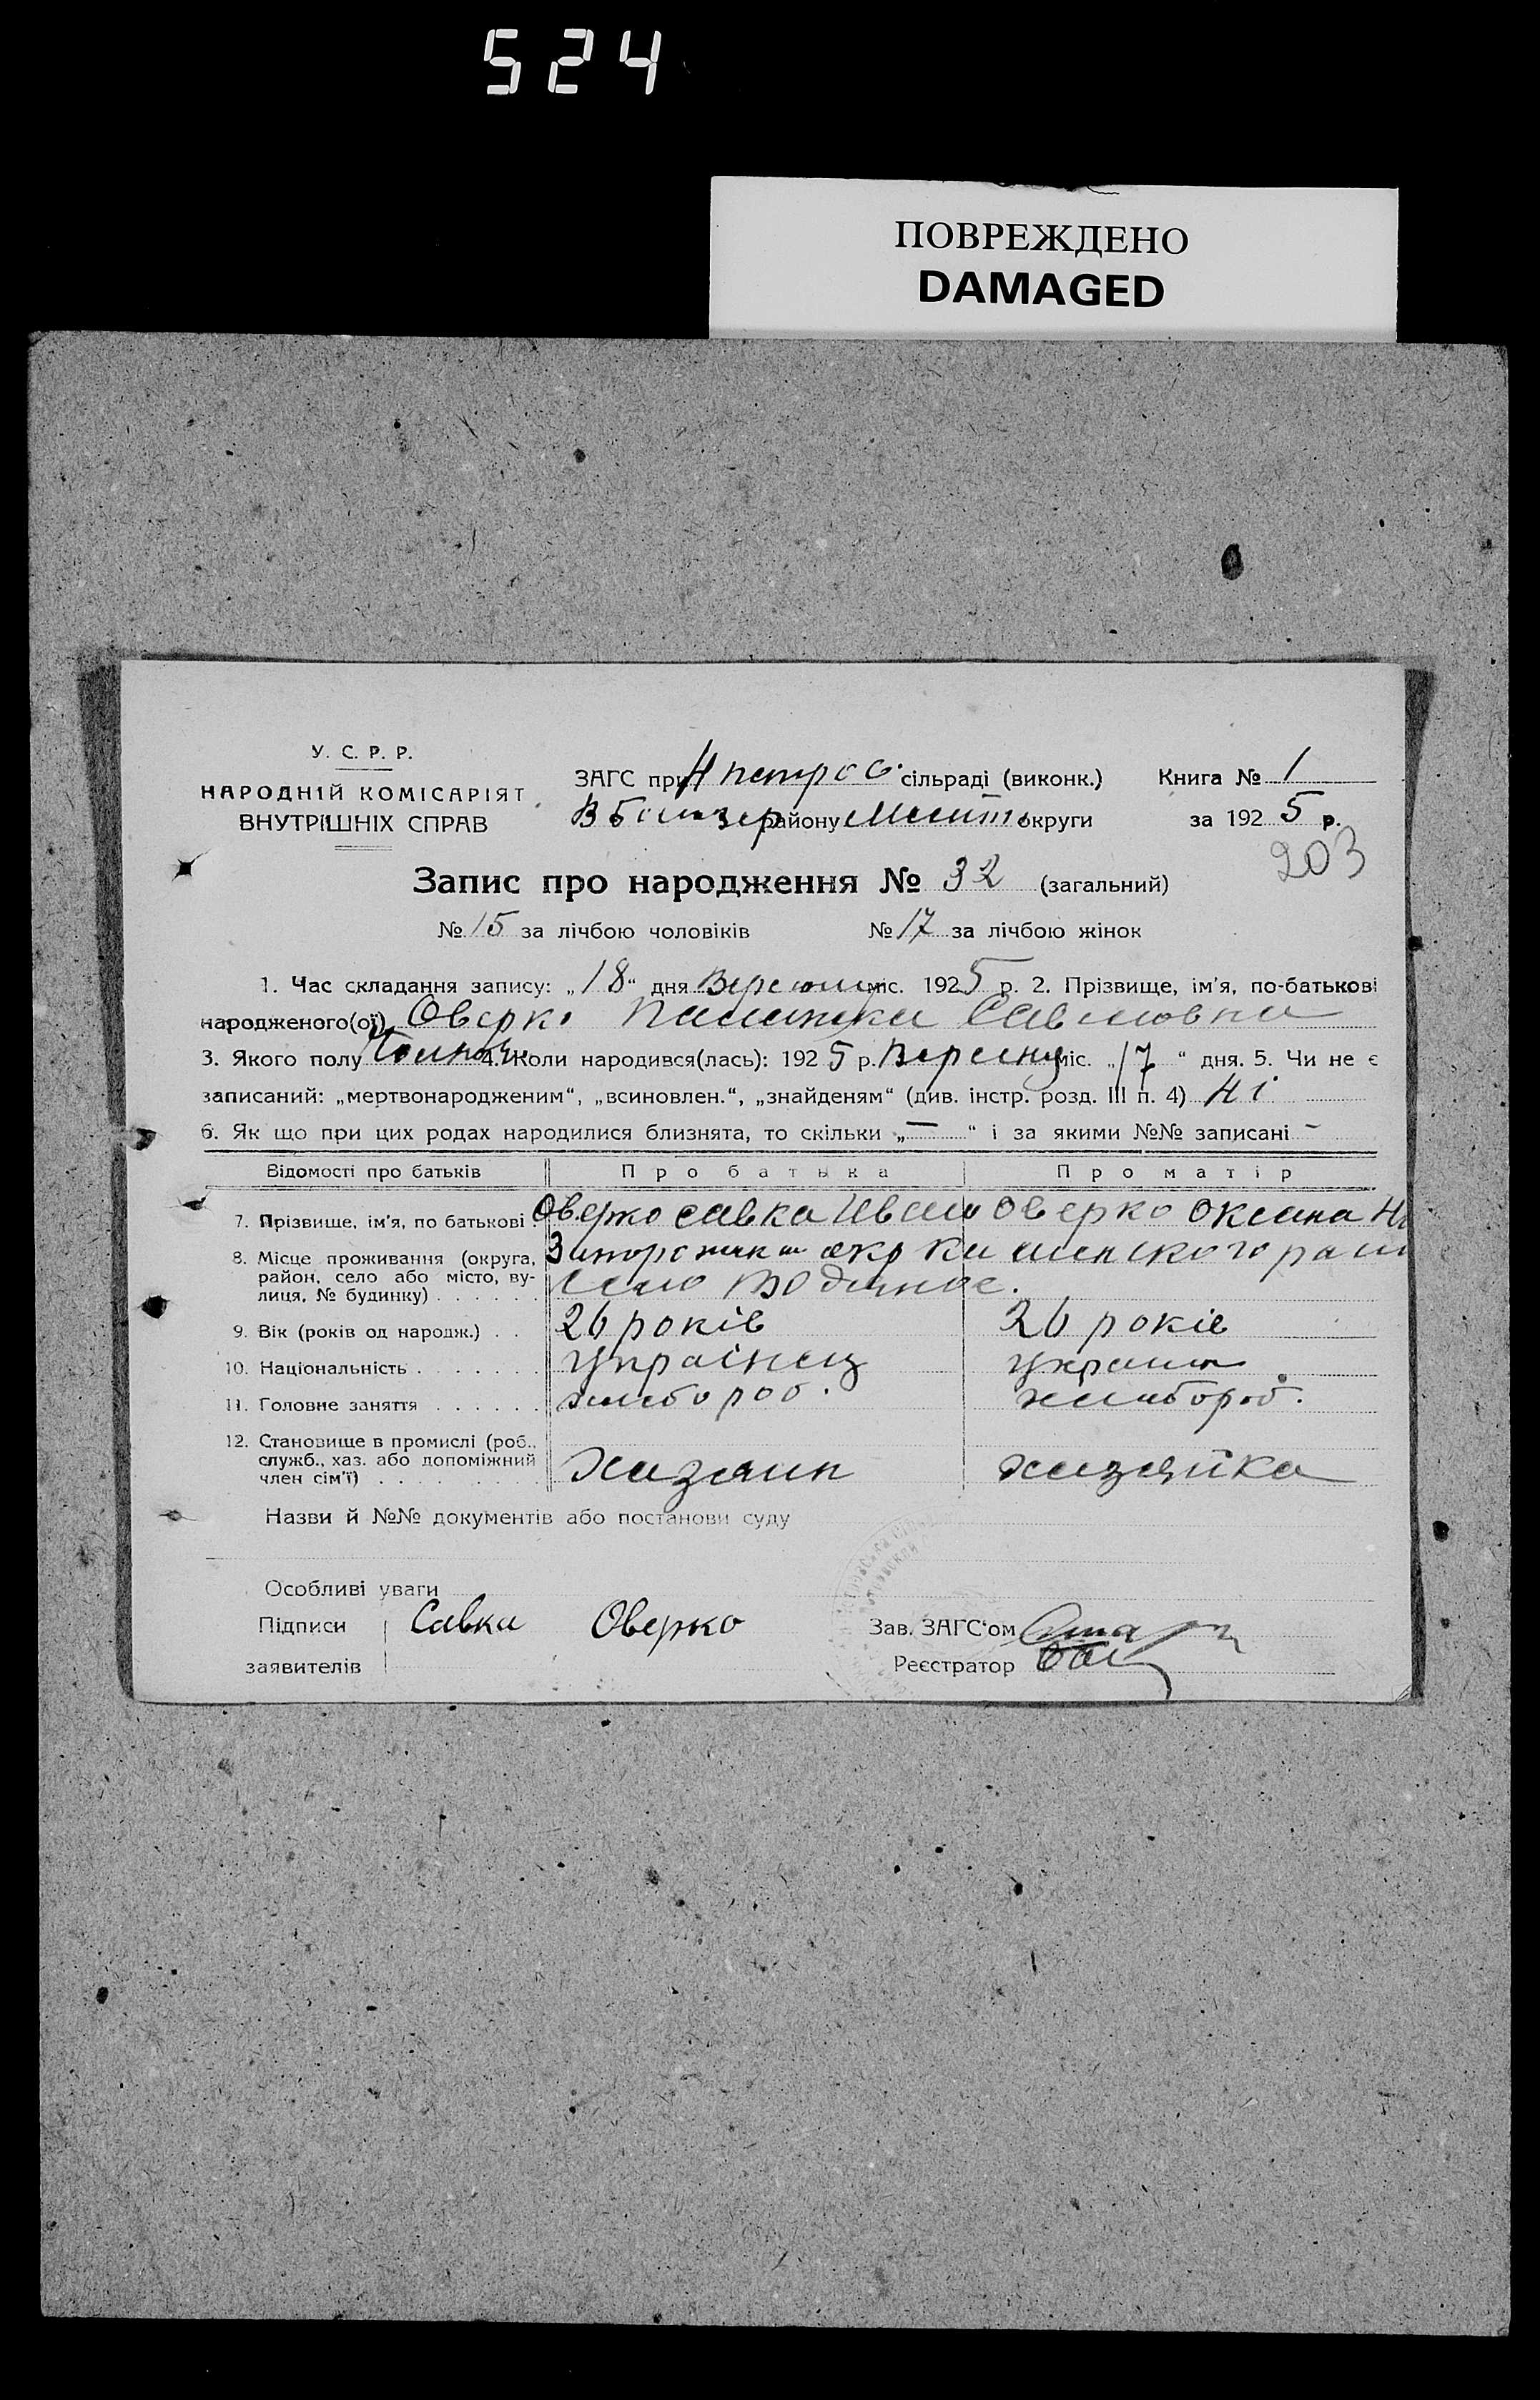 524
ПОВРЕЖДЕНО
DAMAGED
У. С. Р. Р.
НАРОДНІЙ КОМІСАРІЯТ
ВНУТРІШНІХ СПРАВ
ЗАГС при сільраді (виконк.)
району округи
Книга № 1
за 192 5 р.
203
Запис про народження № 32 (загальний)
№ 15 за лічбою чоловіків № 17 за лічбою жінок
1. Час складання запису: „18“ дня міс. 1925 р. 2. Прізвище, ім'я, по-батькові
народженого(ої) Оверко Савловна
3. Якого полу 4. Коли народився(лась): 1925 р. міс. „17“ дня. 5. Чи не є
записаний: „мертвонародженим“, „всиновлен.“, „знайденям“ (див. інстр. розд. III п. 4) Ні
6. Як що при цих родах народилися близнята, то скільки „—“ і за якими №№ записані –
Відомості про батьків Про батька Про матір
7. Прізвище, ім'я, по батькові Оверко Савка Иван Оверко Оксана
8. Місце проживання (округа, район, село або місто, вулиця, № будинку)
село Водяное.
9. Вік (років од народж.) 26 років 26 років
10. Національність українец
11. Головне заняття хлебороб. хлебороб.
12. Становище в промислі (роб., служб., хаз. або допоміжний член сім'ї) хазяин хазяйка
Назви й №№ документів або постанови суду
Особливі уваги
Підписи заявителів Савка Оверко
Зав. ЗАГС'ом
Реєстратор